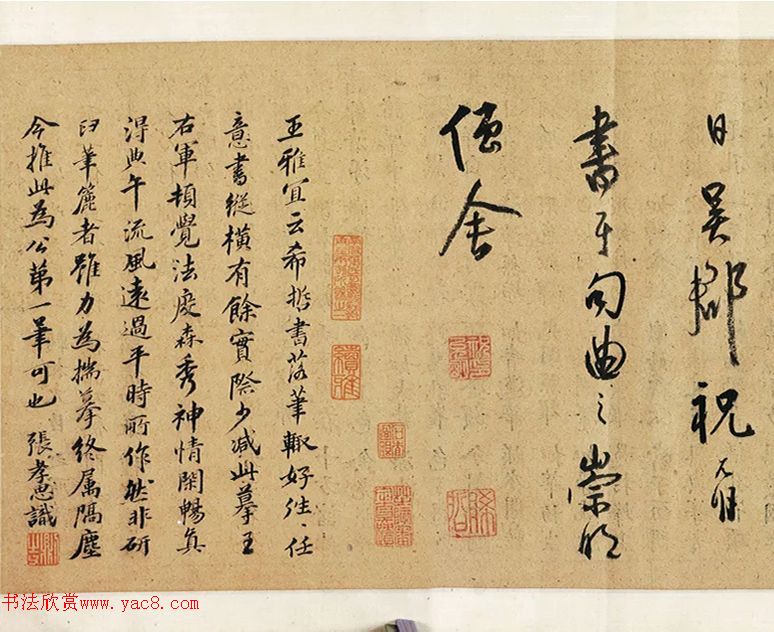 日吴郡祝允明
書于句曲之崇明
僧舍
王雅宜云希哲書落筆輙好往〻任
意書縱橫有餘實際少减此摹王
右軍頓覺法度森秀神情閑暢真
得典午流風遠過平時所作然非研
臼筆簏者雖力為揣摹終属隔塵
今推此為公第一筆可也 張孝思識
书法欣赏www.yac8.com